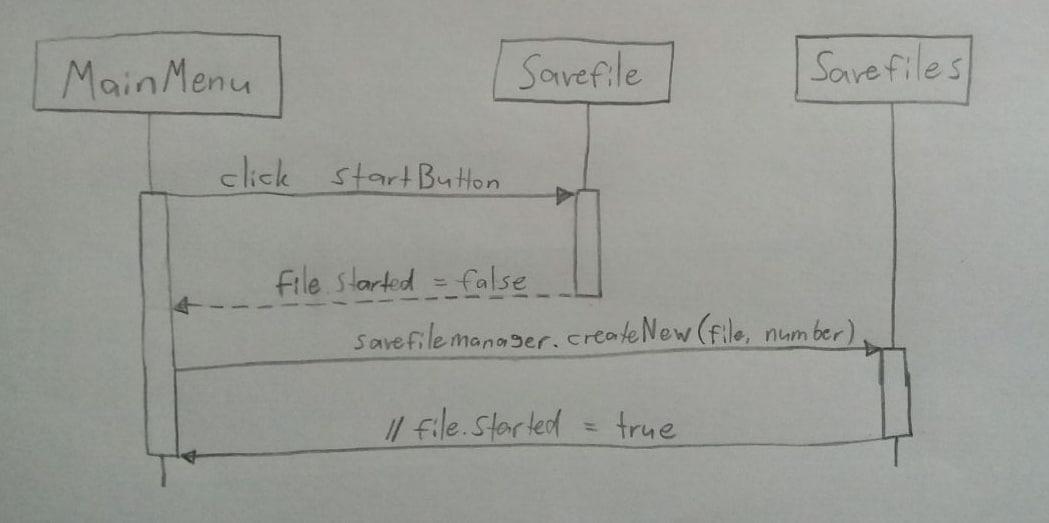 MainMenu
Savefile
Savefiles
click startButton
file.started = false
savefilemanager.createNew(file, number)
// file.started = true